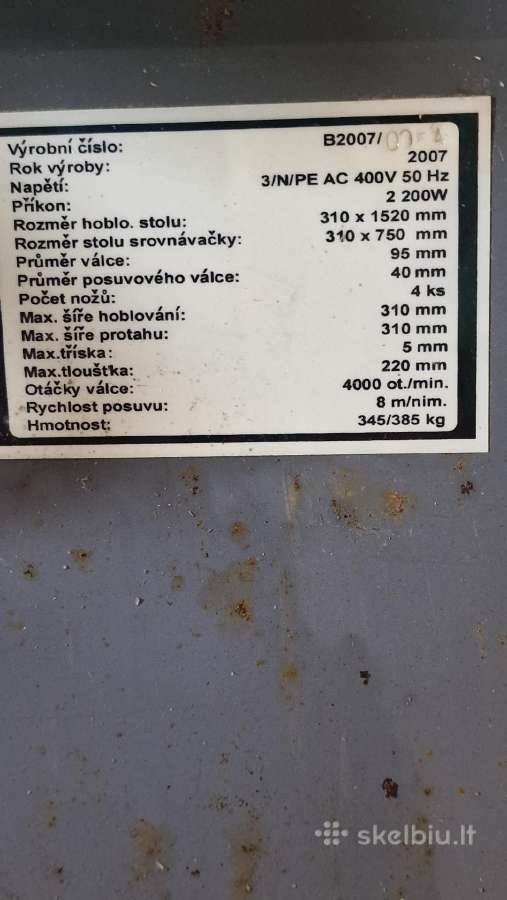 Výrobní číslo: B2007/
Rok výroby: 2007
Napětí: 3/N/PE AC 400V 50 Hz
Příkon: 2 200W
Rozměr hoblo. stolu: 310 x 1520 mm
Rozměr stolu srovnávačky: 310 x 750 mm
Průměr válce: 95 mm
Průměr posuvového válce: 40 mm
Počet nožů: 4 ks
Max. šíře hoblování: 310 mm
Max. šíře protahu: 310 mm
Max.tříska: 5 mm
Max.tloušťka: 220 mm
Otáčky válce: 4000 ot./min.
Rychlost posuvu: 8 m/nim.
Hmotnost: 345/385 kg
skelbiu.lt